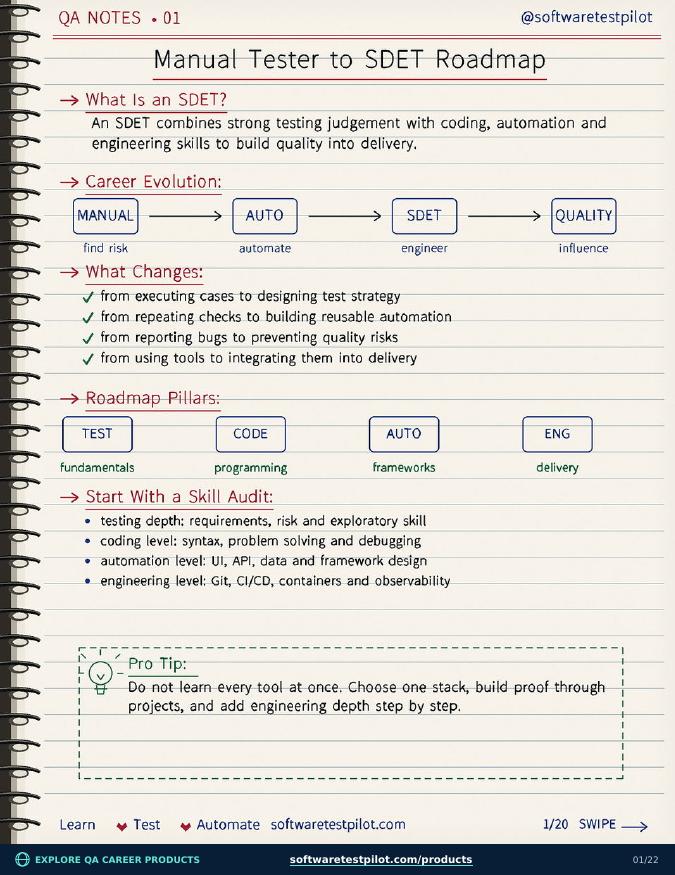 QA NOTES • 01
@softwaretestpilot
Manual Tester to SDET Roadmap
→ What Is an SDET?
An SDET combines strong testing judgement with coding, automation and
engineering skills to build quality into delivery.
→ Career Evolution:
MANUAL → AUTO → SDET → QUALITY
find risk automate engineer influence
→ What Changes:
✓ from executing cases to designing test strategy
✓ from repeating checks to building reusable automation
✓ from reporting bugs to preventing quality risks
✓ from using tools to integrating them into delivery
→ Roadmap Pillars:
TEST CODE AUTO ENG
fundamentals programming frameworks delivery
→ Start With a Skill Audit:
• testing depth: requirements, risk and exploratory skill
• coding level: syntax, problem solving and debugging
• automation level: UI, API, data and framework design
• engineering level: Git, CI/CD, containers and observability
Pro Tip:
Do not learn every tool at once. Choose one stack, build proof through
projects, and add engineering depth step by step.
Learn ♥ Test ♥ Automate softwaretestpilot.com 1/20 SWIPE →
EXPLORE QA CAREER PRODUCTS softwaretestpilot.com/products 01/22